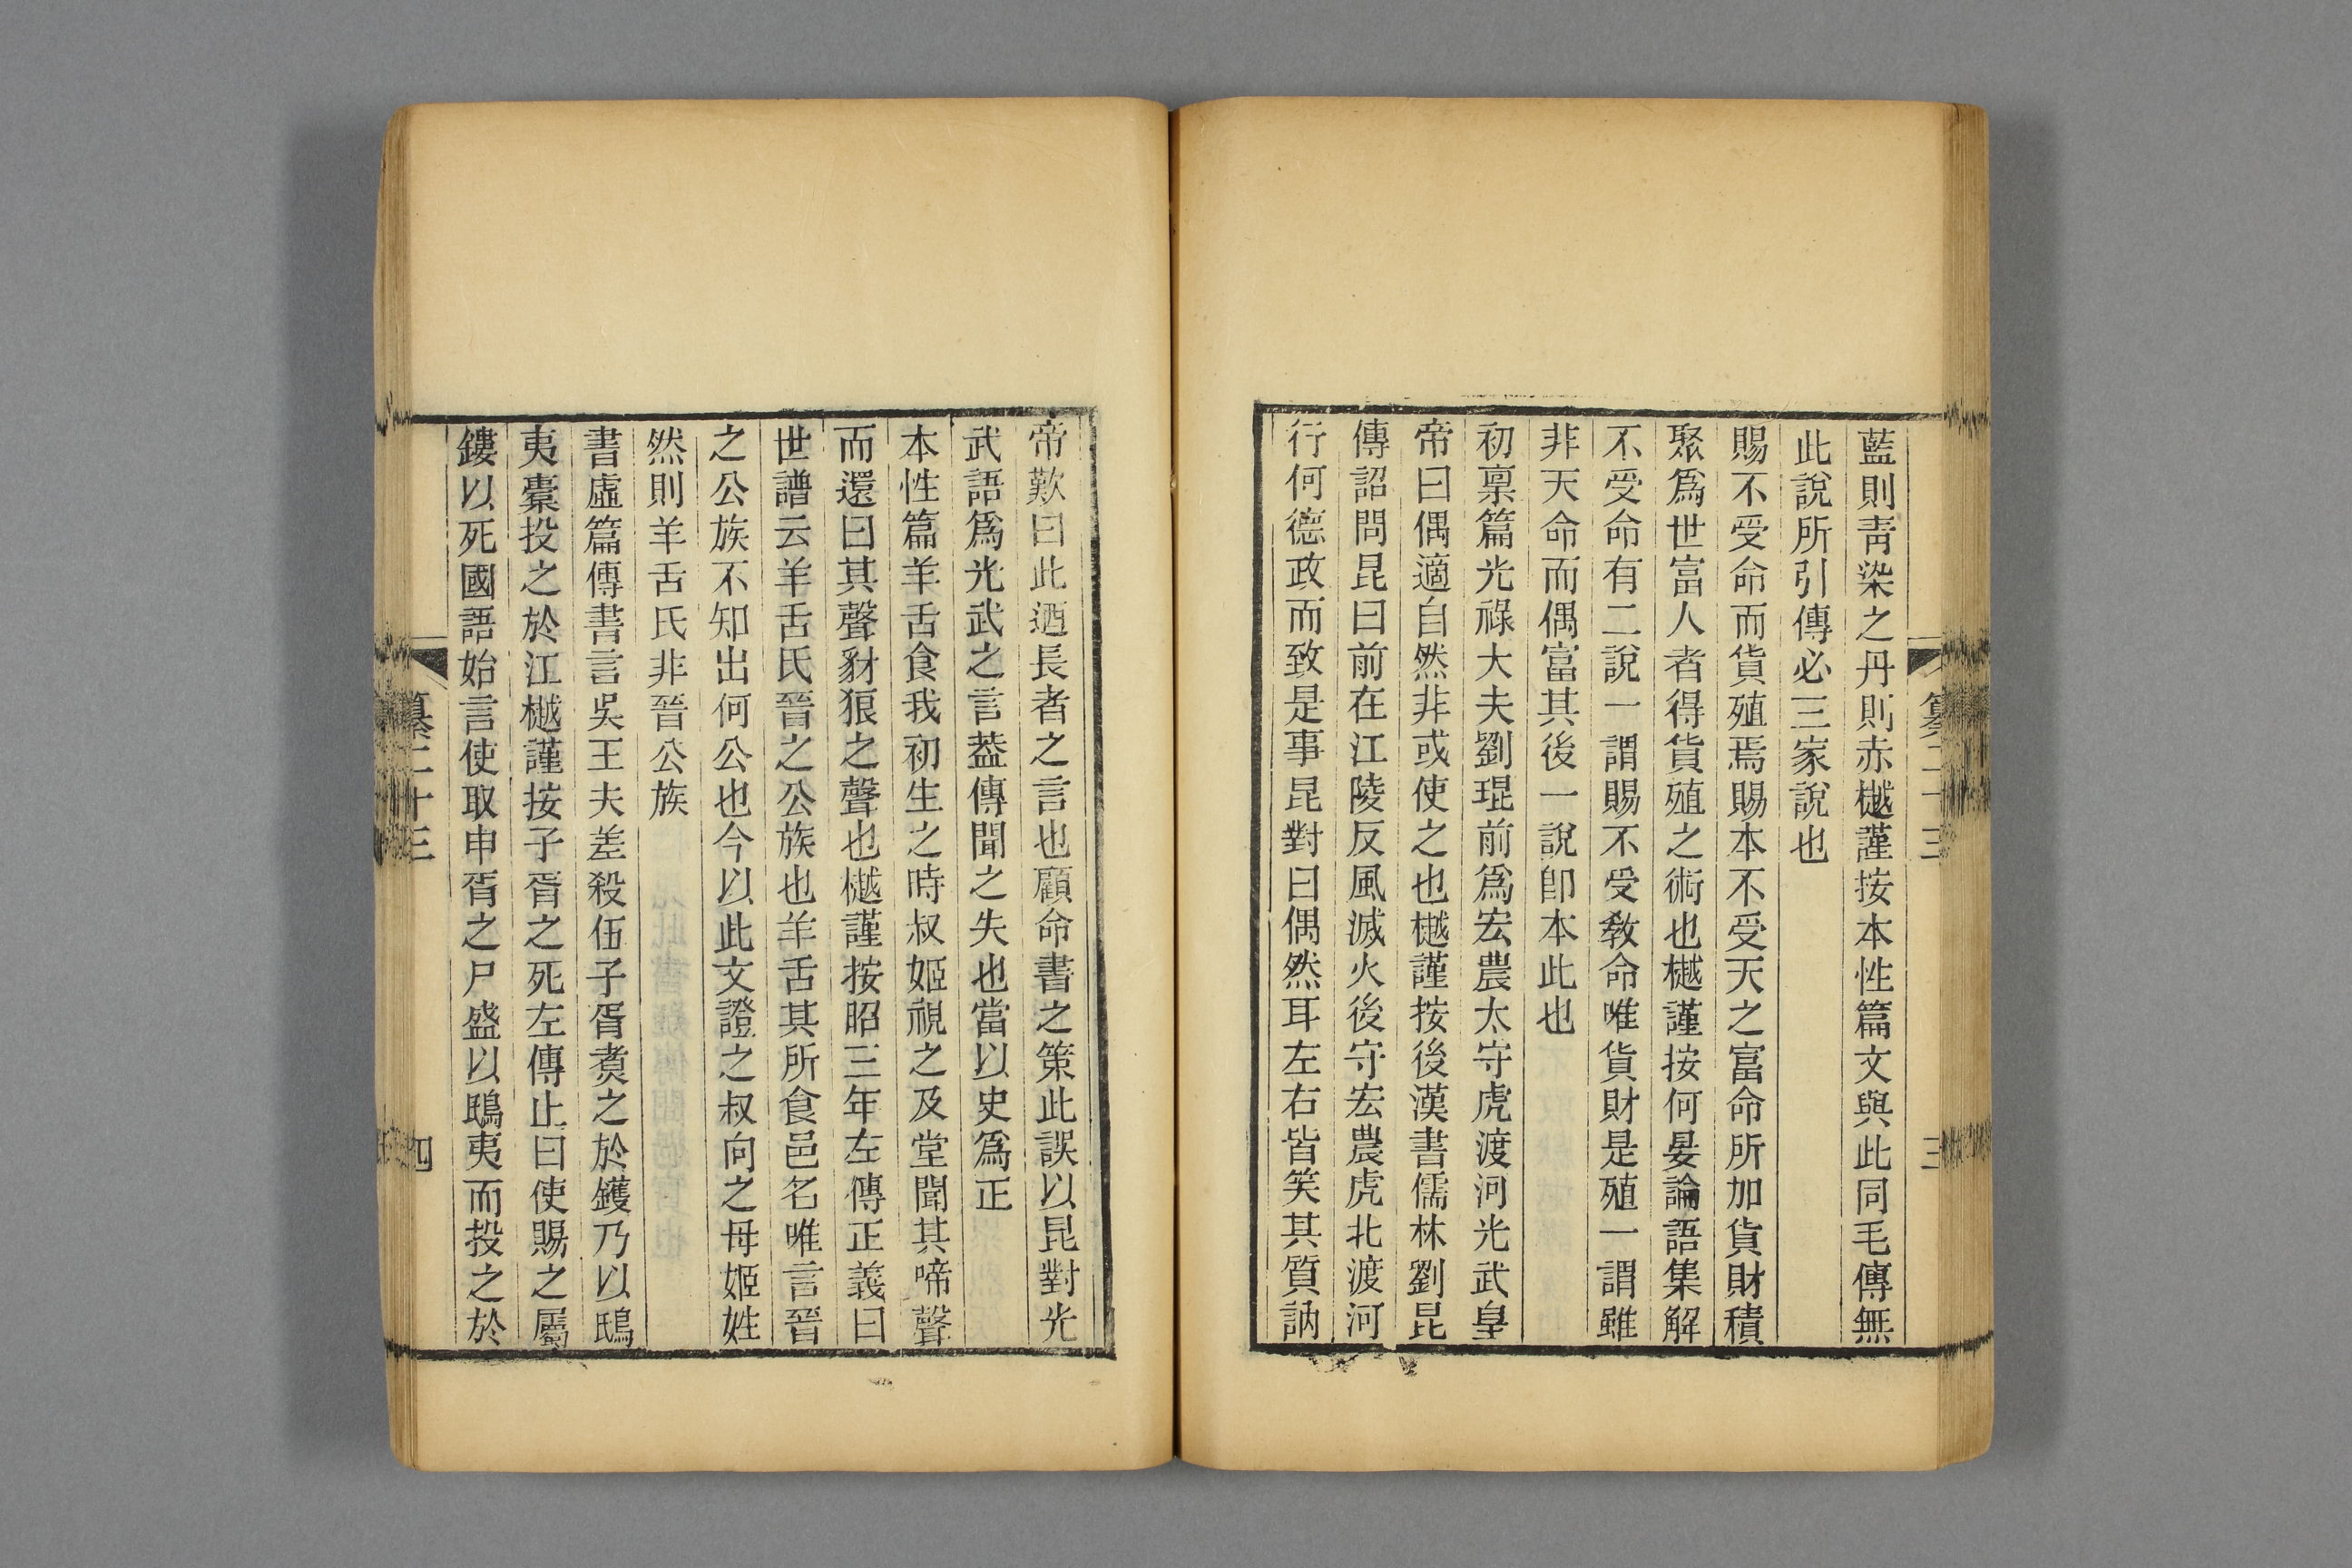 藍則靑染之丹則赤樾謹按本性篇文與此同毛傳無
此說所引傳必三家說也
賜不受命而貨殖焉賜本不受天之富命所加貨財積
聚爲世富人者得貨殖之術也樾謹按何晏論語集解
不受命有二說一謂賜不受敎命唯貨財是殖一謂雖
非天命而偶富其後一說卽本此也
初稟篇光祿大夫劉琨前爲宏農太守虎渡河光武皇
帝曰偶適自然非或使之也樾謹按後漢書儒林劉昆
傳詔問昆曰前在江陵反風滅火後守宏農虎北渡河
行何德政而致是事昆對曰偶然耳左右皆笑其質訥
纂二十三
三
帝歎曰此迺長者之言也顧命書之策此誤以昆對光
武語爲光武之言葢傳聞之失也當以史爲正
本性篇羊舌食我初生之時叔姬視之及堂聞其啼聲
而還曰其聲豺狼之聲也樾謹按昭三年左傳正義曰
世譜云羊舌氏晉之公族也羊舌其所食邑名唯言晉
之公族不知出何公也今以此文證之叔向之母姬姓
然則羊舌氏非晉公族
書虛篇傳書言吳王夫差殺伍子胥煑之於鑊乃以鴟
夷橐投之於江樾謹按子胥之死左傳止曰使賜之屬
鏤以死國語始言使取申胥之尸盛以鴟夷而投之於
纂二十三
四